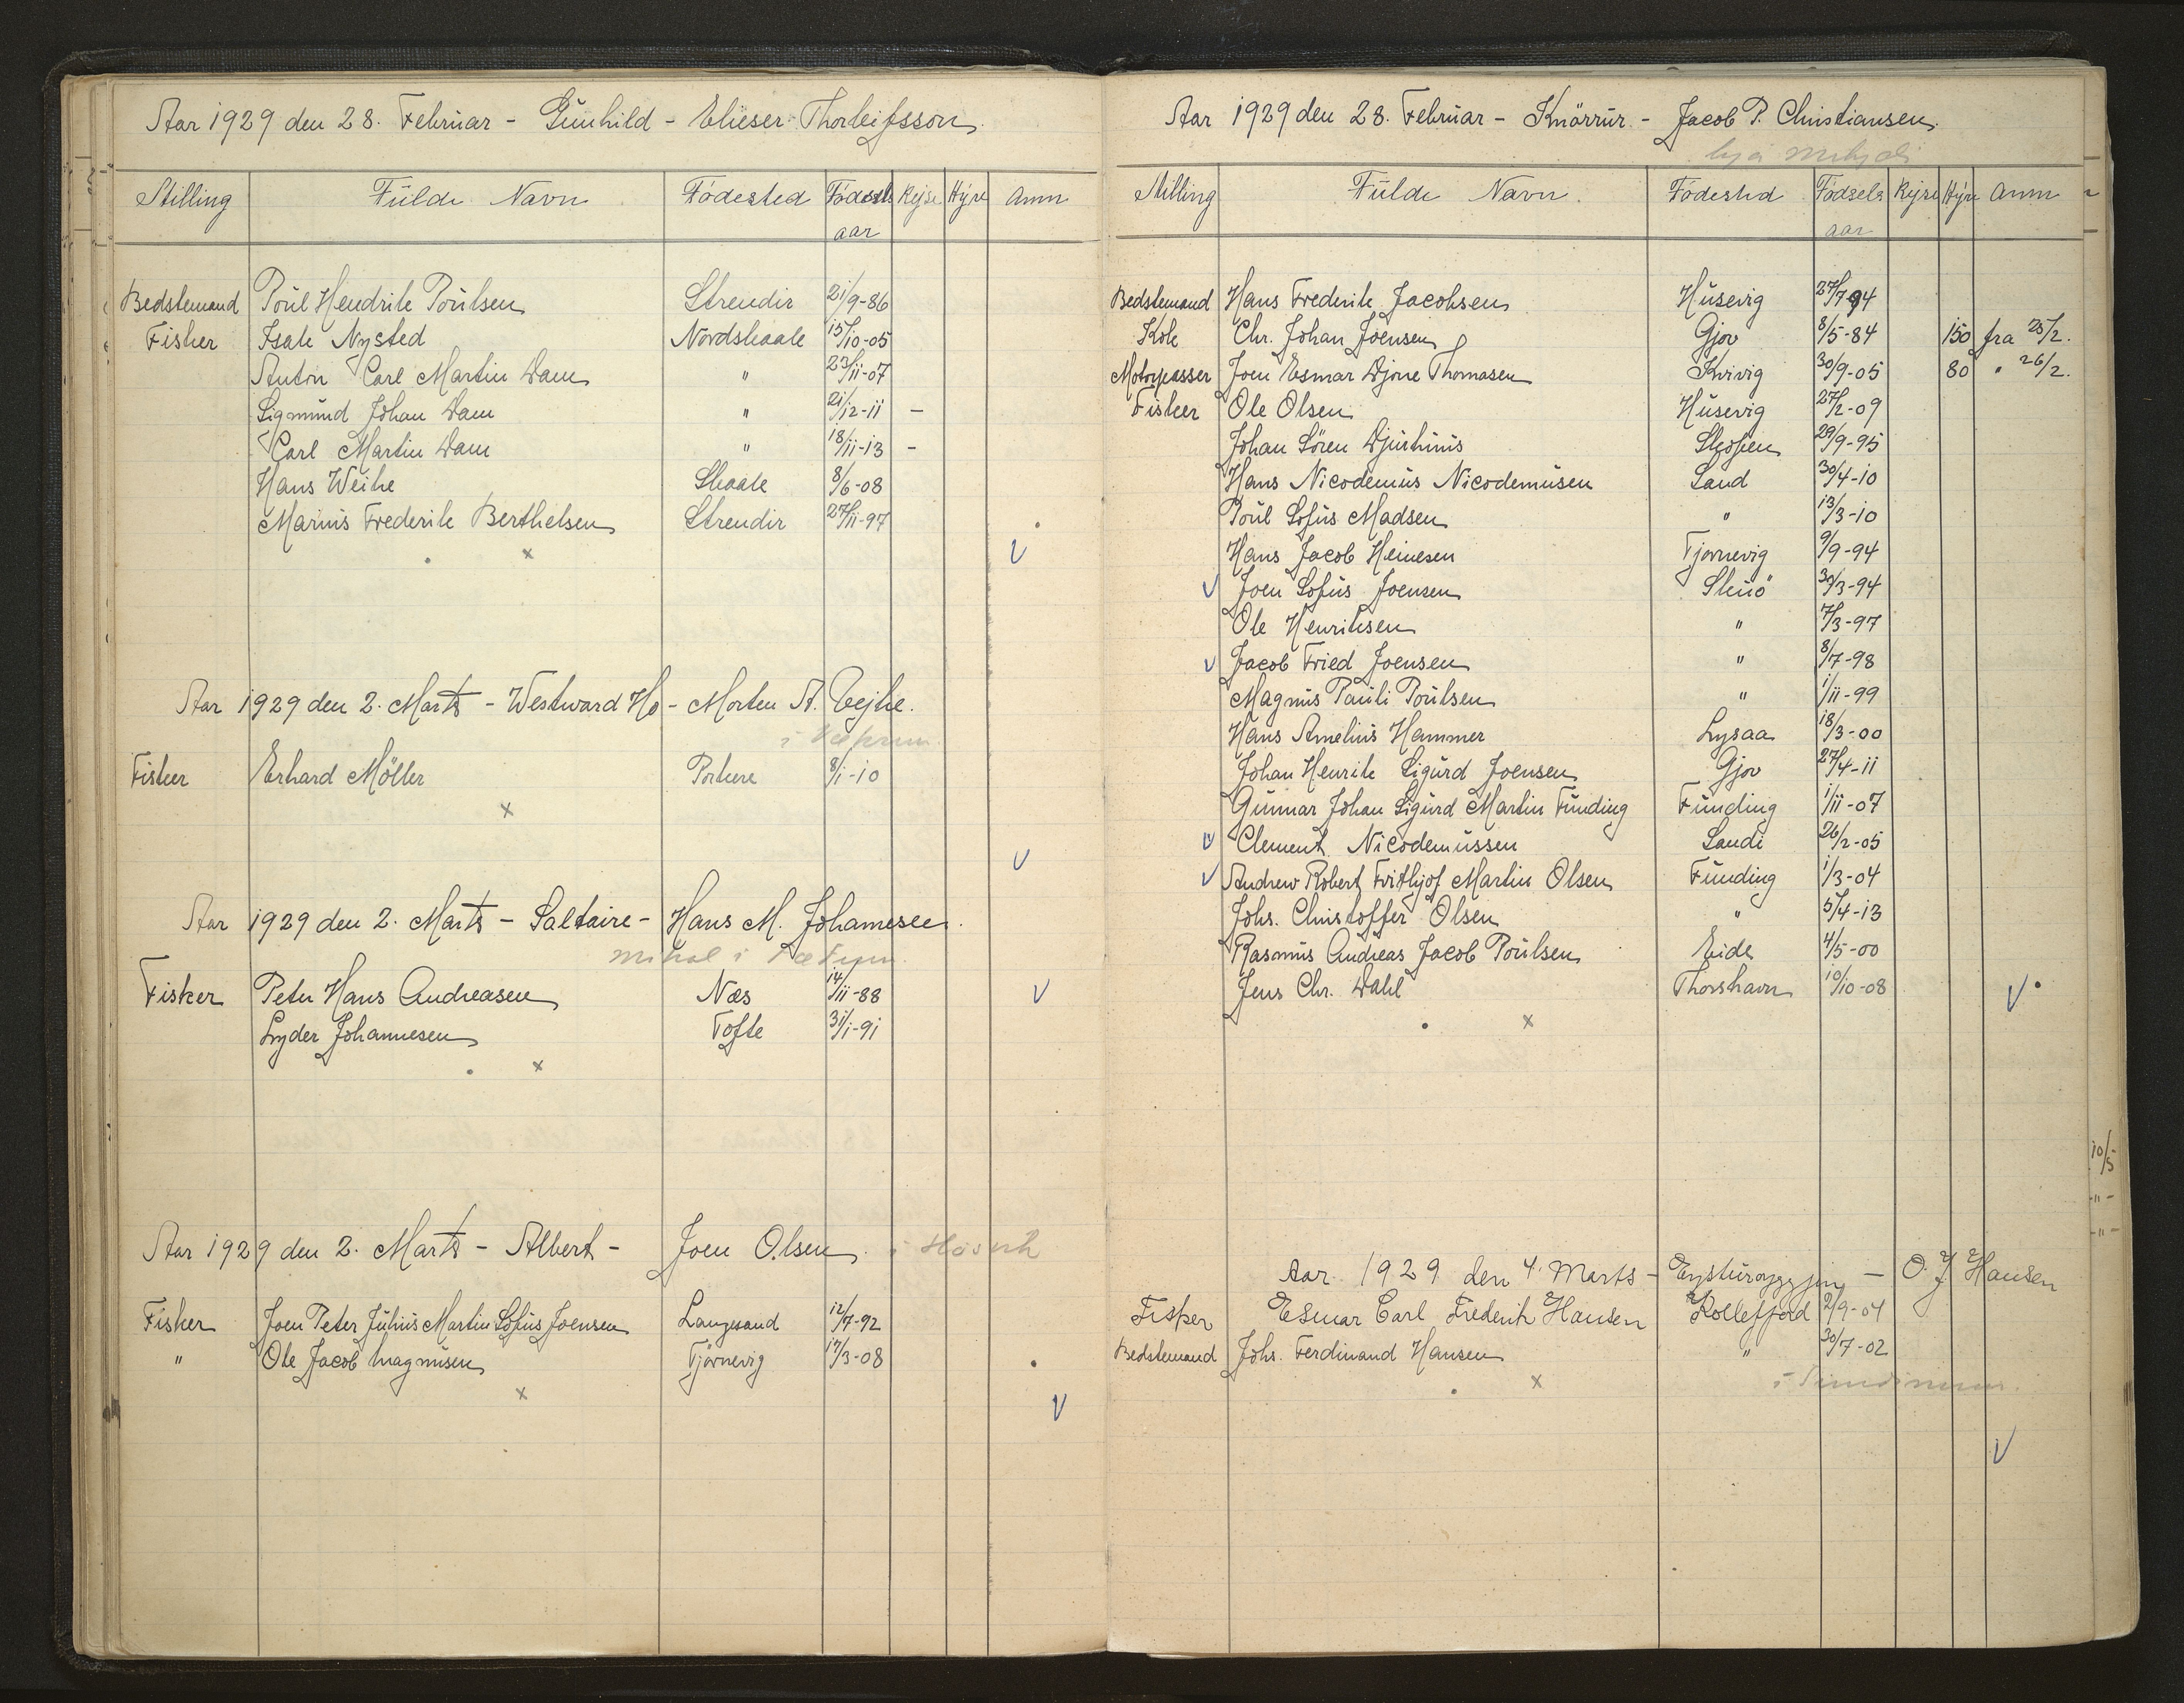 Aar 1929 den 28. Februar - Gunhild - Elieser Thorleifsson.
Stilling Fulde Navn Födested Födsels aar Rejse Hyre Anm
Bedstemand Poul Hendrik Poulsen Strendir 21/9-86
Fisker Isak Nysted Nordskaale 15/10-05
Anton Carl Martin Dam " 23/11-07
Sigmund Johan Dam " 21/12-11 -
Carl Martin Dam " 18/11-13 -
Hans Weihe Skaale 8/6-08
Marius Frederik Berthelsen Strendir 27/11-97
x V
Aar 1929 den 2. Marts - Westward Ho - Morten A. Vejhe.
Fisker Erhard Möller Porkere 8/1-10
x
V
Aar 1929 den 2. Marts - Saltaire - Hans M. Johannesen.
Fisker Peter Hans Andreasen Næs 14/11-88 V
Lyder Johannesen Tofte 31/1-91
x
Aar 1929 den 2. Marts - Albert - Joen Olsen
Fisker Joen Peter Julius Martin Sofus Joensen Langesand 12/7-92
" Ole Jacob Magnusen Tjörnevig 17/3-08
x
V
Aar 1929 den 28. Februar - Knörrur - Jacob P. Christiansen.
Stilling Fulde Navn. Födested Födsels aar Rejse Hyre Anm
Bedstemand Hans Frederik Jacobsen Husevig 27/7 94
Kok Chr. Johan Joensen Gjov 8/5-84 150 fra 25/2.
Motorpasser Joen Esmar Djone Thomasen Kvivig 30/9-05 80 " 26/2.
Fisker Ole Olsen Husevig 27/2-09
Johan Sören Djurhuus Skopen 29/9-95
Hans Nicodemus Nicodemusen Sand 30/4-10
Poul Sofus Madsen " 13/3-10
Hans Jacob Heinesen Tjornevig 9/9-94
V Joen Sofus Joensen Skuö 30/3-94
Ole Henriksen " 7/3-97
V Jacob Fried Joensen " 8/7-98
Magnus Pauli Poulsen " 1/11-99
Hans Amelius Hammer Lysaa 18/3-00
Johan Henrik Sigurd Joensen Gjov 27/4-11
Gunnar Johan Sigurd Martin Funding Funding 1/11-07
V Clement Nicodemussen Sandi 26/2-05
V Andrew Robert Frithjof Martin Olsen Funding 1/3-04
Johs. Christoffer Olsen " 5/4-13
Rasmus Andreas Jacob Poulsen Eide 4/5-00
Jens Chr. Dahl Thorshavn 10/10-08 V
x
Aar 1929 den 4. Marts - Eysturoyggjin - O. J. Hansen
Fisker Esmar Carl Frederik Hansen Kollefjord 2/9-04
Bedstemand Johs. Ferdinand Hansen " 20/7-02
x
V
10/5
-"-
-"-